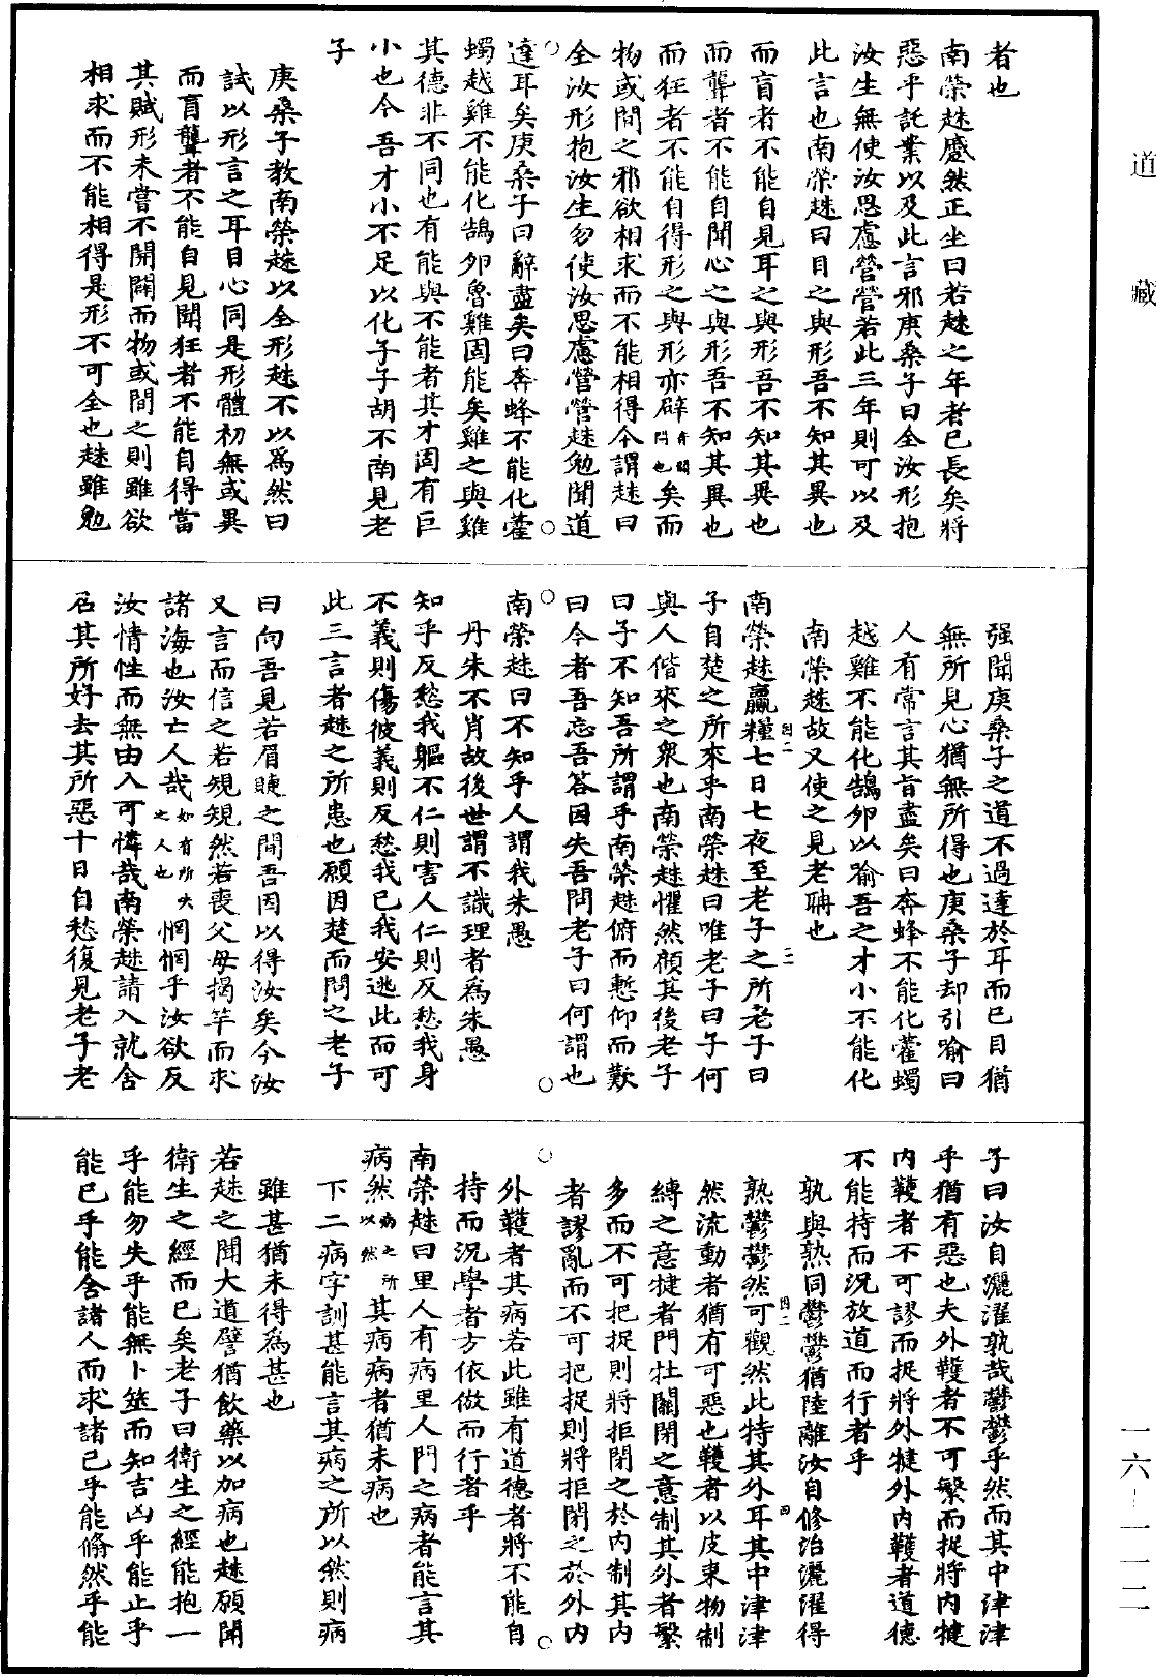 道藏
者也
南榮趎蹙然正坐曰若趎之年者已長矣將
惡乎託業以及此言邪庚桑子曰全汝形抱
汝生無使汝思慮營營若此三年則可以及
此言也南榮趎曰目之與形吾不知其異也
而盲者不能自見耳之與形吾不知其異也
而聾者不能自聞心之與形吾不知其異也
而狂者不能自得形之與形亦辟弇闢閂也矣而
物或間之邪欲相求而不能相得今謂趎曰
全汝形抱汝生勿使汝思慮營營趎勉聞道
達耳矣庚桑子曰辭盡矣曰奔蜂不能化藿
蠋越雞不能化鵠卵魯雞固能矣雞之與雞
其德非不同也有能與不能者其才固有巨
小也今吾才小不足以化子子胡不南見老
子
庚桑子教南榮趎以全形趎不以爲然曰
試以形言之耳目心同是形體初無或異
而盲聾者不能自見聞狂者不能自得當
其賦形未嘗不開闢而物或間之則雖欲
相求而不能相得是形不可全也趎雖勉
强聞庚桑子之道不過達於耳而已目猶
無所見心猶無所得也庚桑子却引喻曰
人有常言其旨盡矣曰奔蜂不能化藿蠋
越雞不能化鵠卵以喻吾之才小不能化
南榮趎故又使之見老聃也
南榮趎贏糧七日七夜至老子之所老子曰
子自楚之所來乎南榮趎曰唯老子曰子何
與人偕來之衆也南榮趎懼然顧其後老子
曰子不知吾所謂乎南榮趎俯而慙仰而歎
曰今者吾忘吾答因失吾問老子曰何謂也
南榮趎曰不知乎人謂我朱愚
丹朱不肖故後世謂不識理者爲朱愚
知乎反愁我軀不仁則害人仁則反愁我身
不義則傷彼義則反愁我已我安逃此而可
此三言者趎之所患也願因楚而問之老子
曰向吾見若眉睫之間吾因以得汝矣今汝
又言而信之若規規然若喪父母揭竿而求
諸海也汝亡人哉如有所失之人也惘惘乎汝欲反
汝情性而無由入可憐哉南榮趎請入就舍
召其所好去其所惡十日自愁復見老子老
子曰汝自灑濯孰哉鬱鬱乎然而其中津津
乎猶有惡也夫外韄者不可繁而捉將內揵
內韄者不可謬而捉將外揵外內韄者道德
不能持而況放道而行者乎
孰與熟同鬱鬱猶陸離汝自修治灑濯得
熟鬱鬱然可觀然此特其外耳其中津津
然流動者猶有可惡也韄者以皮束物制
縛之意揵者門牡關閉之意制其外者繁
多而不可把捉則將拒閉之於內制其內
者謬亂而不可把捉則將拒閉之於外內
外韄者其病若此雖有道德者將不能自
持而況學者方依倣而行者乎
南榮趎曰里人有病里人問之病者能言其
病然病之所以然其病病者猶未病也
下二病字訓甚能言其病之所以然則病
雖甚猶未得為甚也
若趎之聞大道譬猶飲藥以加病也趎願聞
衛生之經而已矣老子曰衛生之經能抱一
乎能勿失乎能無卜筮而知吉凶乎能止乎
能已乎能舍諸人而求諸已乎能翛然乎能
一六—一一二